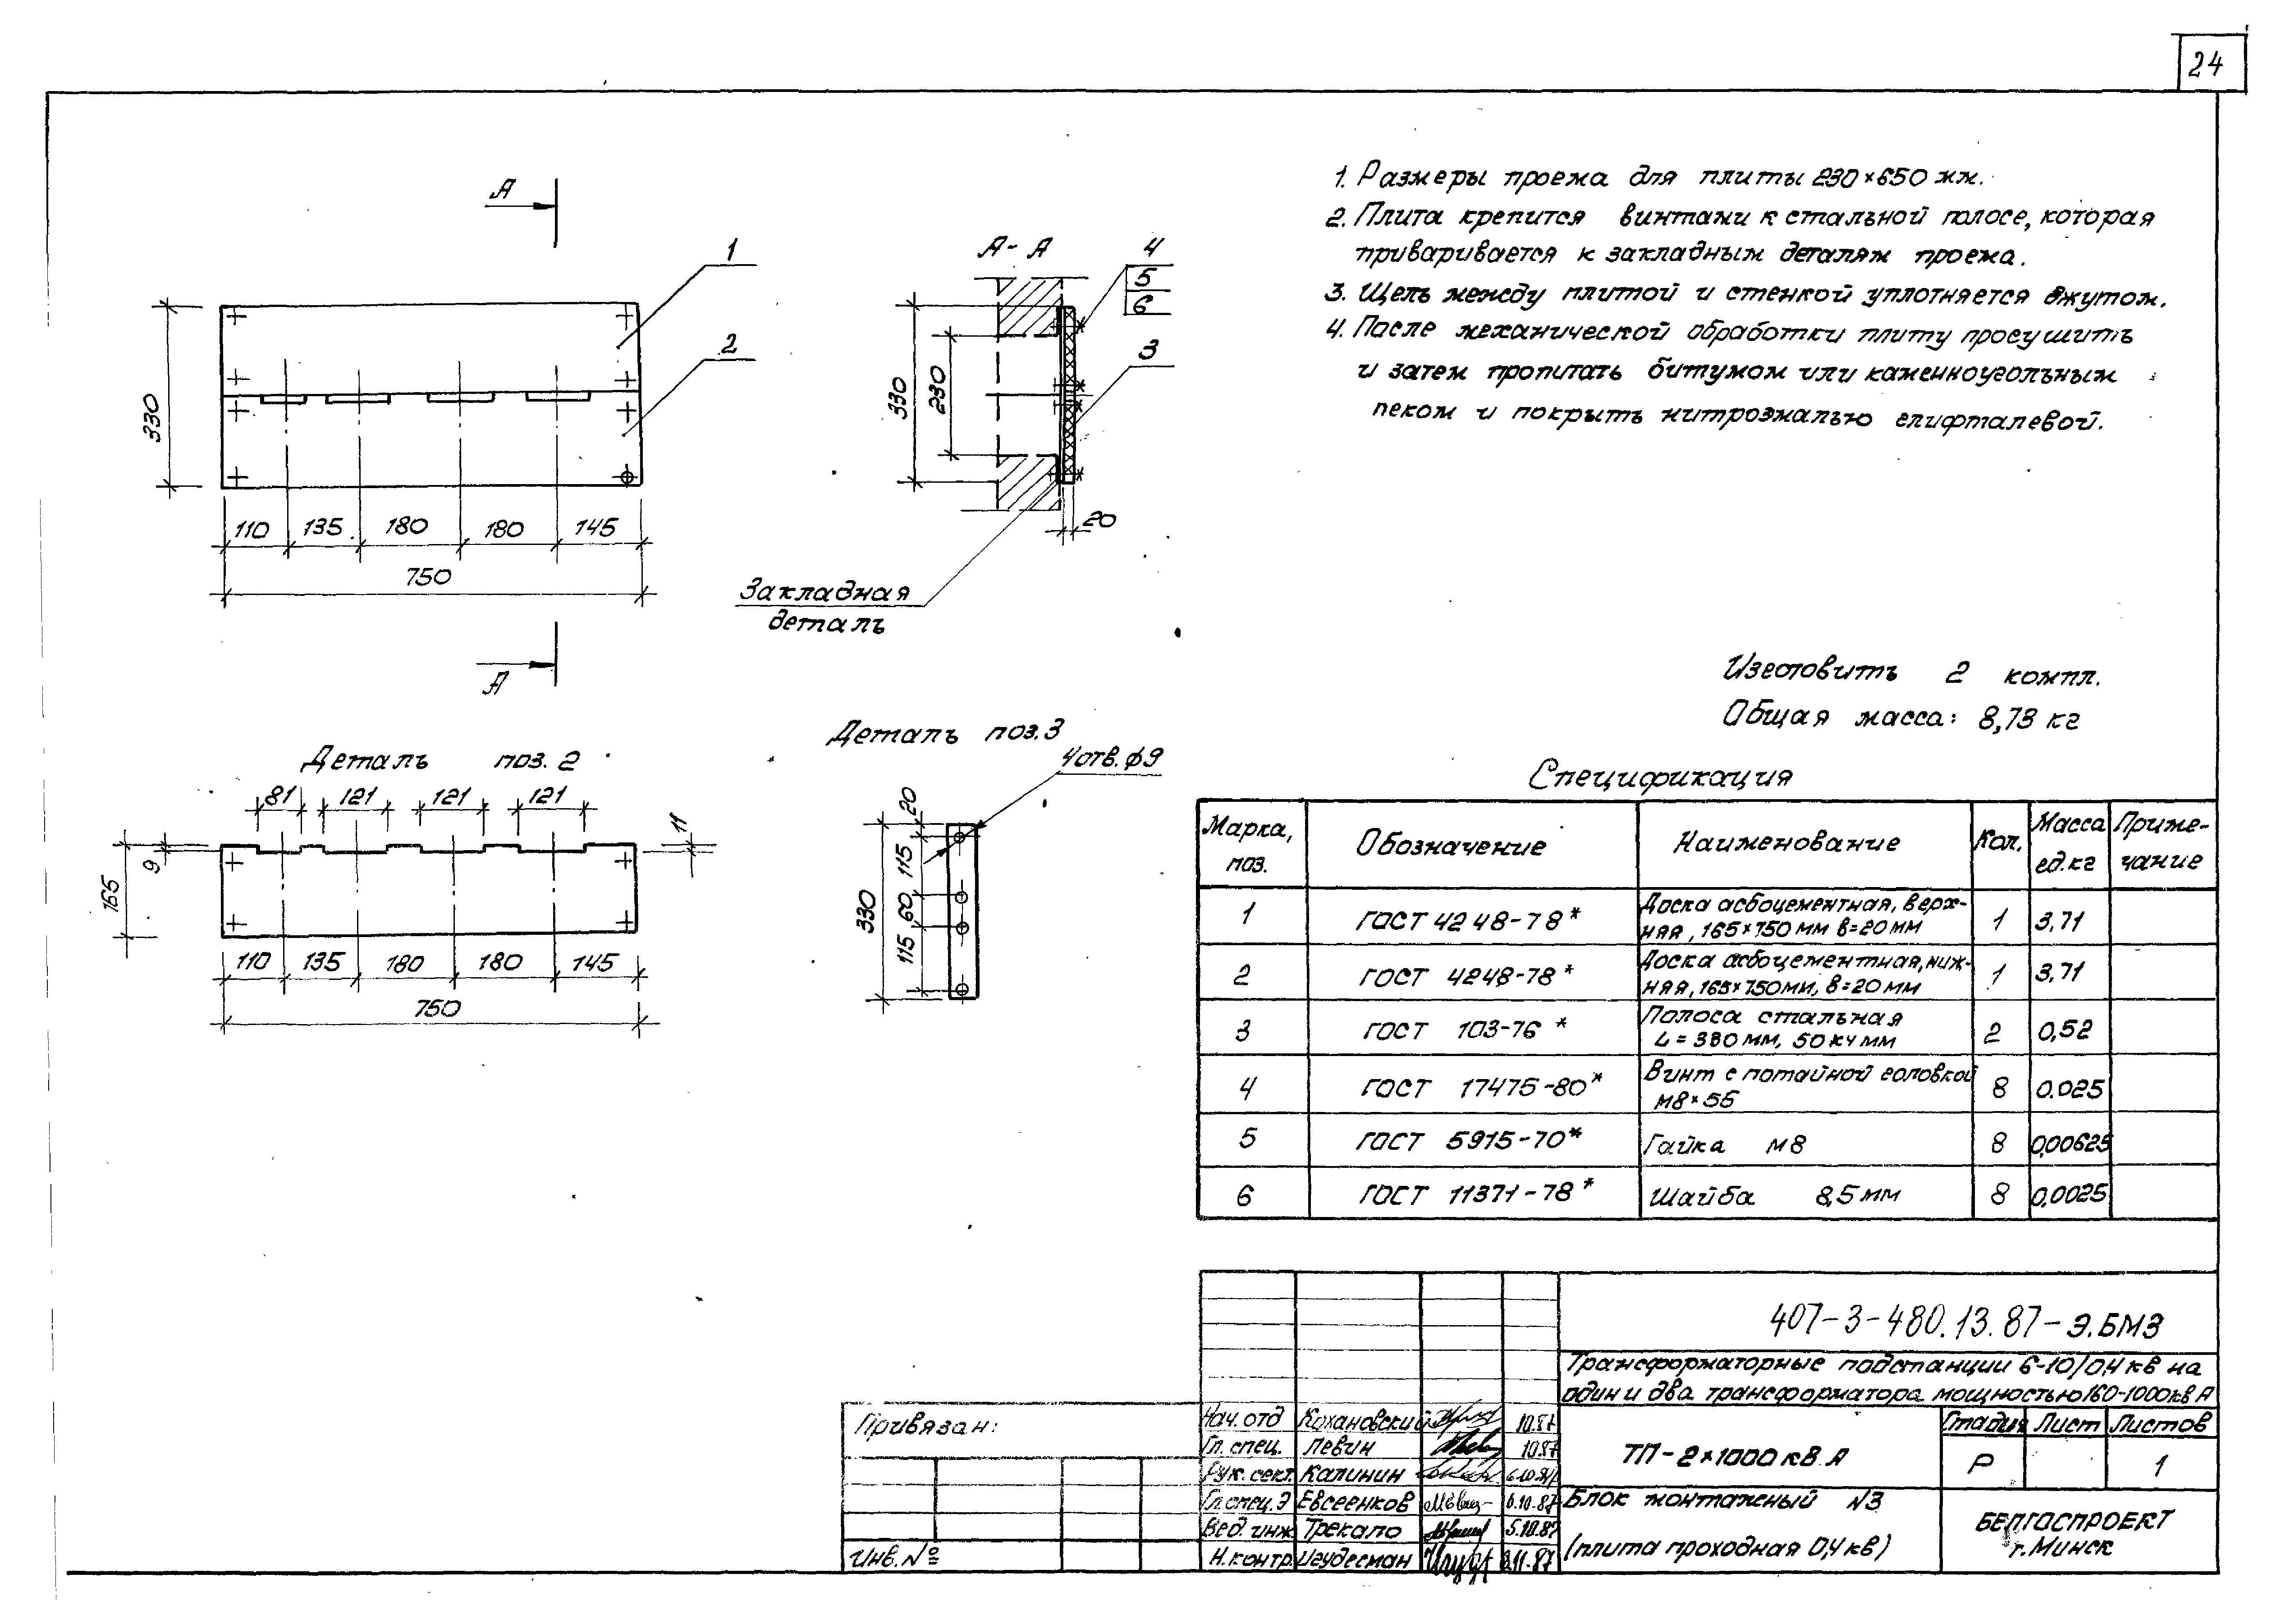 24
1. Размеры проема для плиты 230×650 мм.
2. Плита крепится винтами к стальной полосе, которая
приваривается к закладным деталям проема.
3. Щель между плитой и стенкой уплотняется жгутом.
4. После механической обработки плиту просушить
и затем пропитать битумом или каменноугольным
пеком и покрыть нитроэмалью глифталевой.
А
1
2
330
110 135 180 180 145
750
А
А-А
4
5
6
3
330
230
20
Закладная
деталь
Изготовить 2 компл.
Общая масса: 8,73 кг
Деталь поз. 2
81 121 121 121
11
9
165
110 135 180 180 145
750
Деталь поз. 3
4 отв. ф9
20
115
60
115
330
Спецификация
Марка, поз. Обозначение Наименование Кол. Масса ед.кг Примечание
1 ГОСТ 4248-78* Доска асбоцементная, верх-
няя, 165×750 мм в=20 мм 1 3,71
2 ГОСТ 4248-78* Доска асбоцементная, ниж-
няя, 165×750мм, в=20 мм 1 3,71
3 ГОСТ 103-76* Полоса стальная
L=330 мм, 50х4 мм 2 0,52
4 ГОСТ 17475-80* Винт с потайной головкой
М8×55 8 0.025
5 ГОСТ 5915-70* Гайка М8 8 0,00625
6 ГОСТ 11371-78* Шайба 8,5 мм 8 0,0025
407-3-480.13.87-Э.БМ3
Трансформаторные подстанции 6-10/0,4 кв на
один и два трансформатора мощностью 160-1000 кв А
Привязан:
Инв. №
Нач. отд Кохановский 10.87
Гл. спец. Левин 10.87
Рук. сект. Калинин
Гл. спец. Э Евсеенков 6.10.87
Вед. инж Трекало 5.10.87
Н. контр. Игудесман
ТП-2×1000 кв.А
Стадия Лист Листов
Р 1
Блок монтажный №3
(плита проходная 0,4 кв)
БЕЛГОСПРОЕКТ
г. Минск